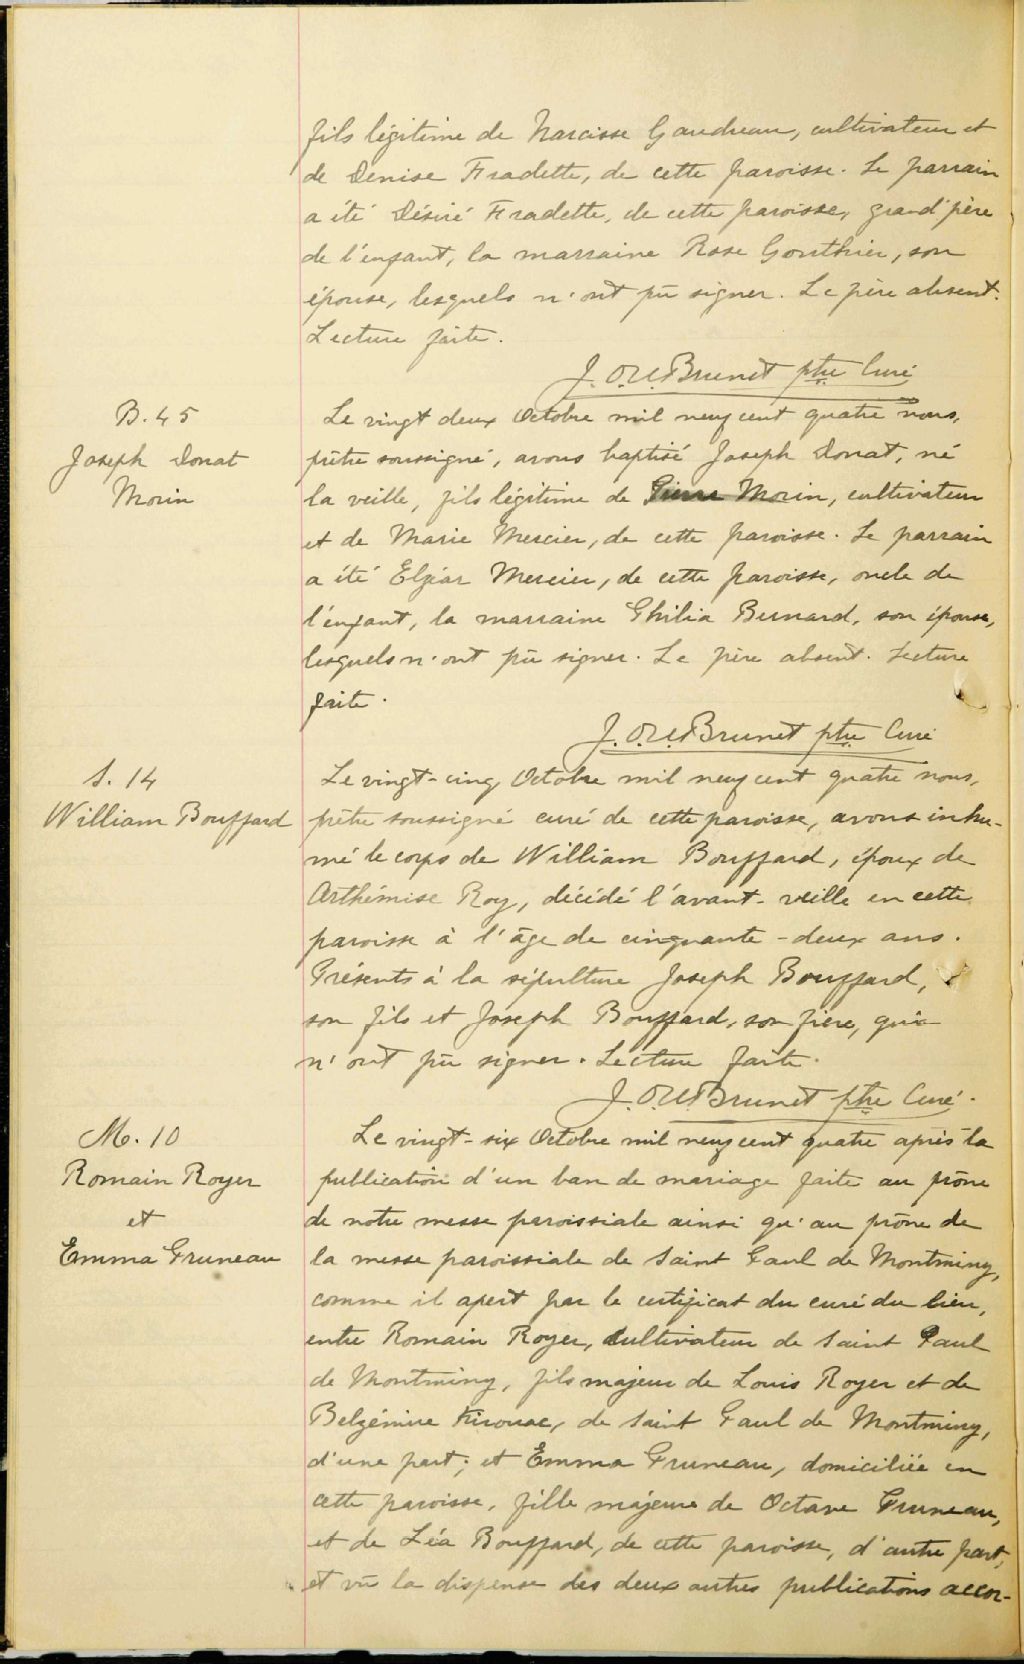 fils légitime de Narcisse Gaudreau, cultivateur et
de Denise Fradette, de cette paroisse. Le parrain
a été Désiré Fradette, de cette paroisse, grand'père
de l'enfant, la marraine Rose Gonthier, son
épouse, lesquels n'ont pû signer. Le père absent.
Lecture faite.
J. O. U. Brunet ptre Curé
B. 45
Joseph Donat
Morin
Le vingt deux Octobre mil neuf cent quatre nous,
prêtre soussigné, avons baptisé Joseph Donat, né
la veille, fils légitime de Pierre Morin, cultivateur
et de Marie Mercier, de cette paroisse. Le parrain
a été Elzéar Mercier, de cette paroisse, oncle de
l'enfant, la marraine Philia Bernard, son épouse,
lesquels n'ont pû signer. Le père absent. Lecture
faite.
J. O. U. Brunet ptre Curé
S. 14
William Bouffard
Le vingt-cinq Octobre mil neuf cent quatre nous,
prêtre soussigné curé de cette paroisse, avons inhu-
mé le corps de William Bouffard, époux de
Arthémise Roy, décédé l'avant-veille en cette
paroisse à l'âge de cinquante-deux ans.
Présents à la sépulture Joseph Bouffard,
son fils et Joseph Bouffard, son frère, qui
n'ont pû signer. Lecture faite.
J. O. U. Brunet ptre Curé.
M. 10
Romain Royer
et
Emma Pruneau
Le vingt-six Octobre mil neuf cent quatre après la
publication d'un ban de mariage faite au prône
de notre messe paroissiale ainsi qu'au prône de
la messe paroissiale de Saint Paul de Montminy,
comme il apert par le certificat du curé du lieu,
entre Romain Royer, Cultivateur de Saint Paul
de Montminy, fils majeur de Louis Royer et de
Belzémire Kirouac, de Saint Paul de Montminy,
d'une part; et Emma Pruneau, domiciliée en
cette paroisse, fille majeure de Octave Pruneau,
et de Léa Bouffard, de cette paroisse, d'autre part,
et vû la dispense des deux autres publications accor-